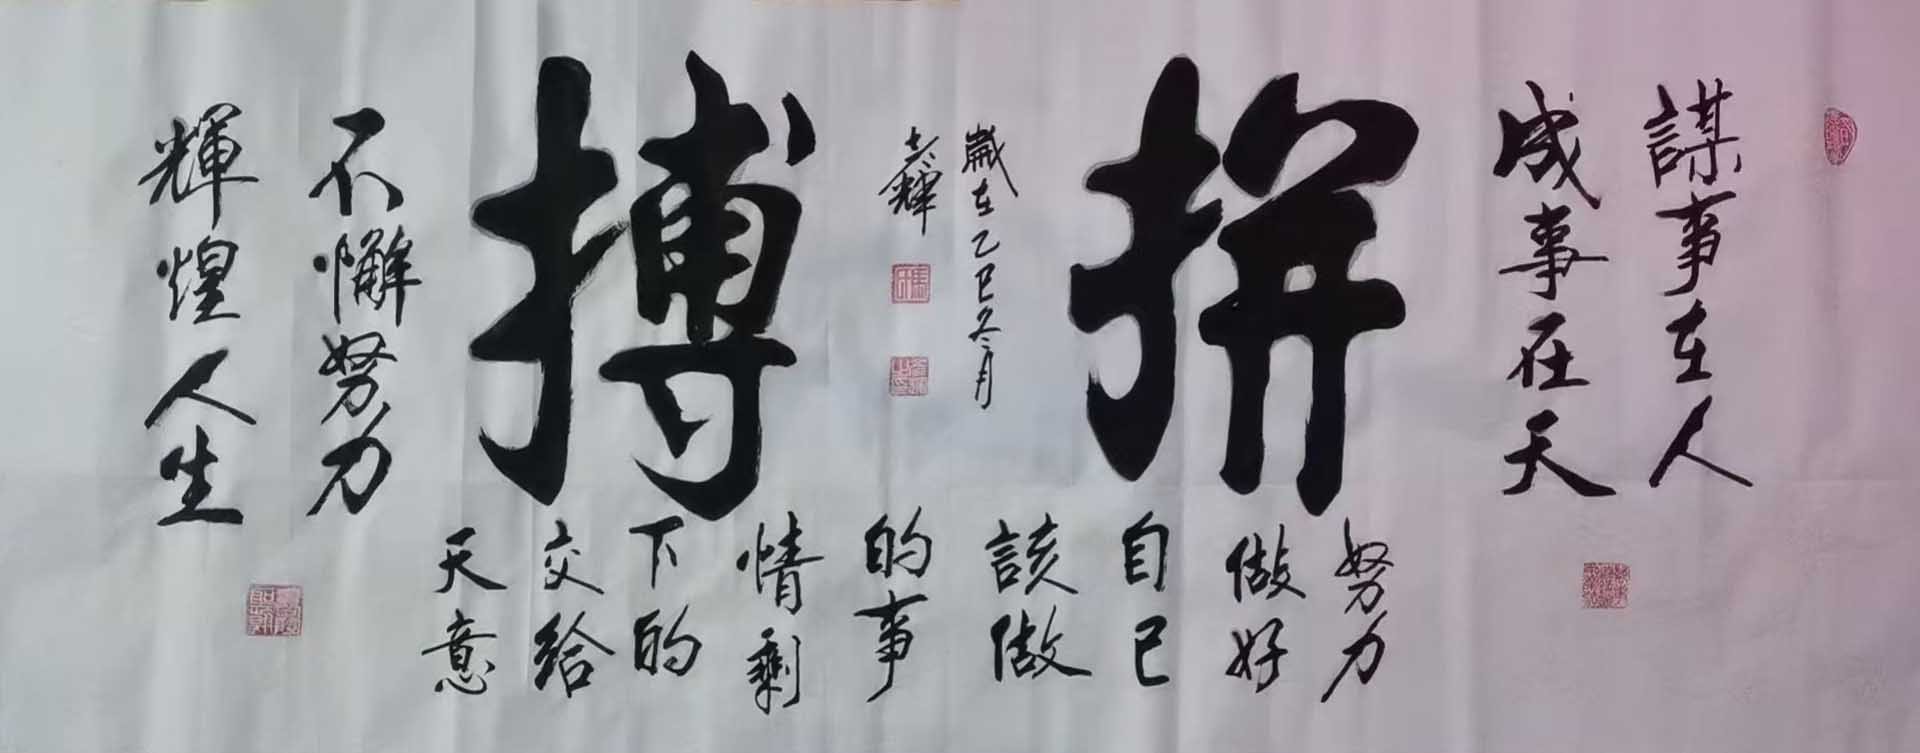 謀事在人
成事在天
拼搏
歲在乙巳冬月
志輝
不懈努力
輝煌人生
努力
做好
自己
該做
的事
情剩
下的
交給
天意